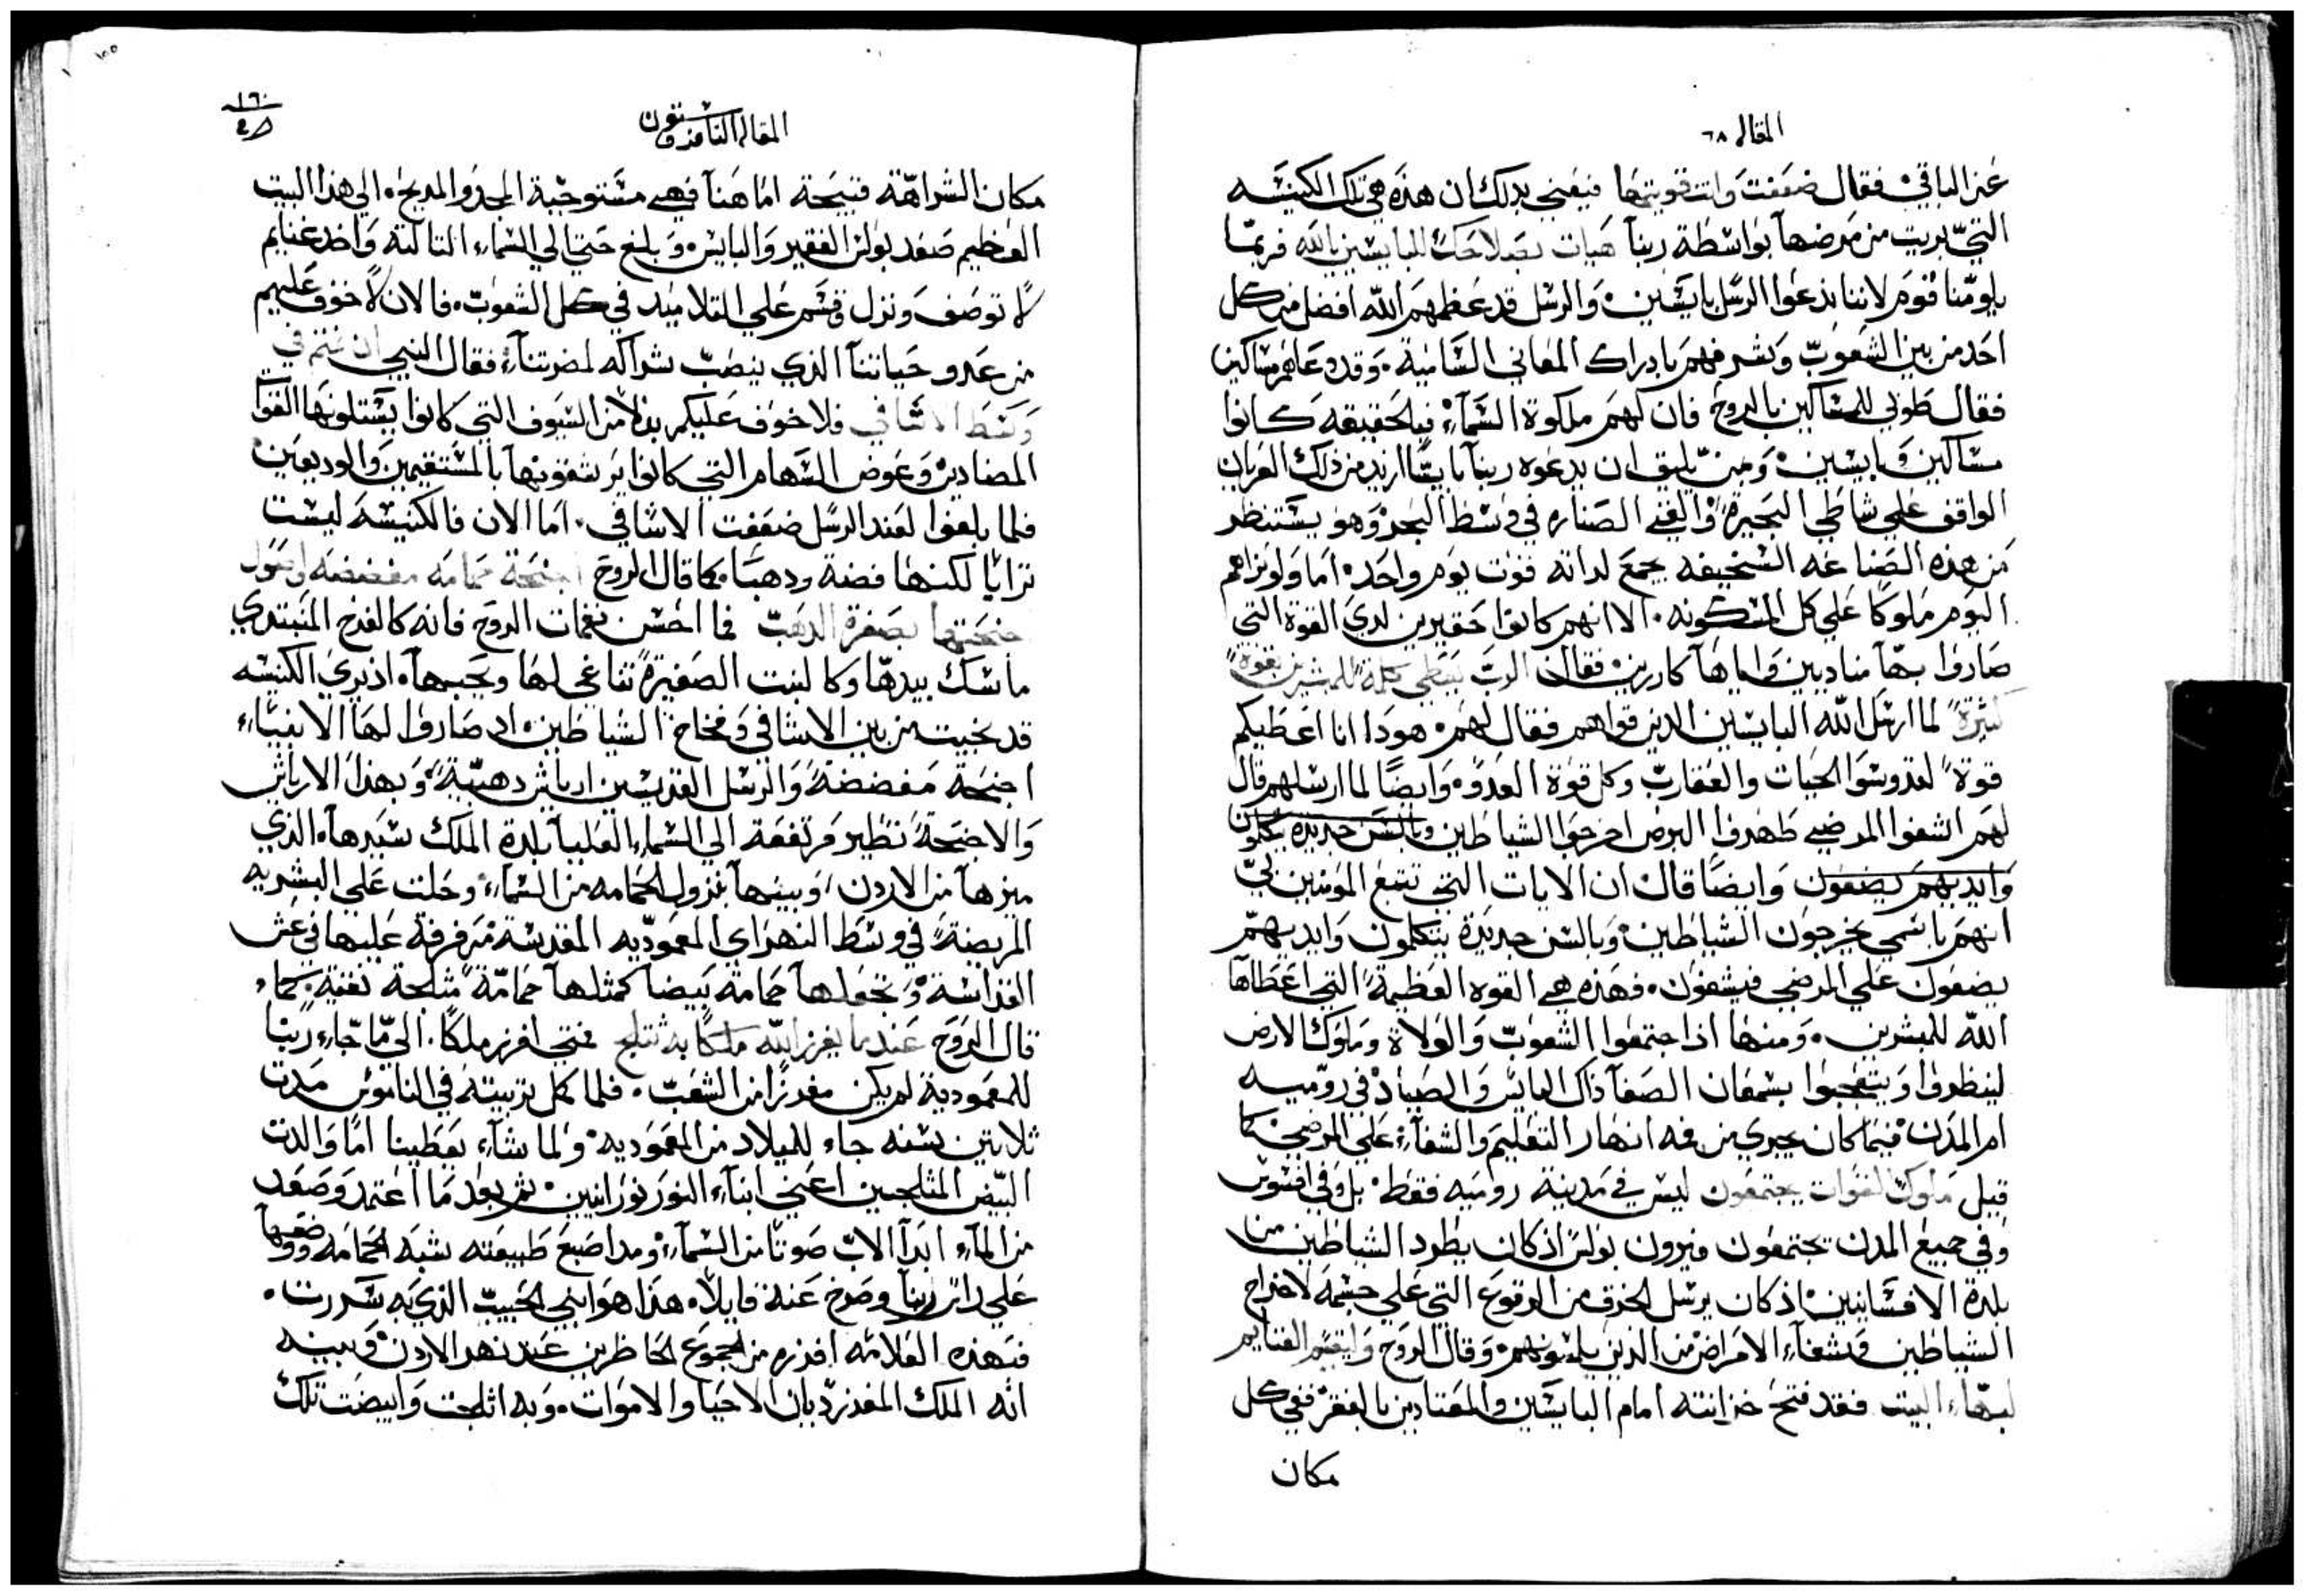 المقاله ٦٨
عن الباقي فقال ضعفت وانت قويتها فيعني بدلك ان هذه هي تلك الكنيسه
التي بريت من مرضها بواسطة ربنا هيات بصلاحك للبايسين يالله فربما
يلومنا قوم لاننا ندعوا الرسل بايسين والرسل قد عظمهم الله افضل من كل
احد من بين الشعوب وشرفهم بادراك المعاني السامية وقد دعاهم مساكين
فقال طوبي للمساكين بالروح فان لهم ملكوة السماء فبالحقيقه كانوا
مساكين وبايسين ومن يليق ان يدعوه ربنا بايسا ازيد من ذلك العريان
الواقف علي شاطي البحيرة والقي الصناره في وسط البحر وهو يستنظر
من هذه الصناعه السخيفه يجمع لداته قوت يوم واحد اما ولو نراهم
اليوم ملوكا علي كل المسكونه الا انهم كانوا حقيرين لدي القوة التي
صاروا بها منادين واياها كارزين فقال الرب يعطي كلمة للمبشرين بقوة
كثيرة لما ارسل الله البايسين الدين قواهم فقال لهم هودا انا اعطيكم
قوة لتدوسوا الحيات والعقارب وكل قوة العدو وايضا لما ارسلهم قال
لهم اشفوا المرضي طهروا البرص اخرجوا الشياطين وبالسن جديدة يتكلمون
وايديهم يضعون وايضا قال ان الايات التي تتبع المومنين بي
انهم باسمي يخرجون الشياطين وبالسن جديدة يتكلمون وايديهم
يضعون علي المرضي فيشفون فهذه هي القوه العظيمة التي اعطاها
الله للمبشرين ومنها اذا اجتمعوا الشعوب والولاة وملوك الارض
لينظروا ويتعجبوا بسمعان الصفا ذاك البايس والصياد في روميه
ام المدن فيما كان يجري من فمه انهار التعليم والشفاء علي المرضي كما
قيل ملوك القوات يجتمعون ليس في مدينة روميه فقط بل وفي افسوس
وفي جميع المدن يجتمعون ويرون بولس اذ كان يطرد الشياطين من
بلدة الافسانيين اذ كان يرسل الخرق من الرقوع التي علي جسمه لاخراج
الشياطين وشفاء الامراض من الدين يلمسونهم وقال الروح وليقسم الغنايم
لبهاء البيت فقد فتح خزانته امام البايسين والمعتادين بالفقر ففي كل
مكان
١٦٠
المقاله الثامنه وستون
مكان الشراهة قبيحة اما هنا فهي مستوجبة المجد والمديح الي هذا البيت
العظيم صعد بولس الفقير والبايس وبلغ حتي الي السماء التالته واخد غنايم
لا توصف ونزل وقسم علي التلاميد في كل الشعوب فالان لا خوف عليهم
من عدو حياتنا الذي ينصب شراكه لمضرتنا فقال النبي ان نمتم في
وسط الاثافي فلا خوف عليكم بدلا من السيوف التي كانوا يستلونها القوات
المضادين وعوض السهام التي كانوا يرشقونها بالمستقيمين والوديعين
فلما بلغوا لعند الرسل ضعفت الاثافي اما الان فالكنيسه ليست
ترابا لكنها فضة ودهبا كما قال الروح اجنحة حمامه مفضضه واصول
جنحيها بصفرة الدهب فما احسن نغمات الروح فانه كالفرخ المبتدي
ماسك بيدها وكالبنت الصغيرة تناغي لها ويحبها اذ يري الكنيسه
قد نجيت من بين الاثافي وفخاخ الشياطين اد صاروا لها الانبياء
اجنحة مفضضة والرسل القديسين ارياش دهبية وبهذا الارياش
والاجنحة تطير مرتفعة الي السماء العليا بلدة الملك سيدها الذي
ميزها من الاردن وبينها بنزول الحمامه من السماء وحلت علي البشريه
المريضة في وسط النهر اي المعموديه المقدسة مرفرفة عليها في عش
القداسة وتجعلها حمامة بيضا كمثلها حمامة مثلجة نقية كما
قال الروح عندما يفرز الله ملكا به تثلج فمتي افرز ملكا الي ما جاء ربنا
للمعمودية لم يكن مفرزا من الشعب فلما كمل تربيته في الناموس مدت
ثلاتين سنه جاء للميلاد من المعموديه ولما شاء يعطينا اما والدت
البيض المثلجين اعني ابناء النور نورانيين ثم بعد ما اعتمد وصعد
من الماء ابدا الاب صوتا من السماء ومد اصبع طبيعته شبه الحمامه ووضعها
علي راس ربنا وصرخ عنه قايلا هذا هو ابني الحبيب الذي به سررت
فبهذه العلامه افرزه من الجموع الحاظرين عند نهر الاردن وبينه
انه الملك المفرز ديان الاحيا والاموات وبه اثلجت وابيضت تلك